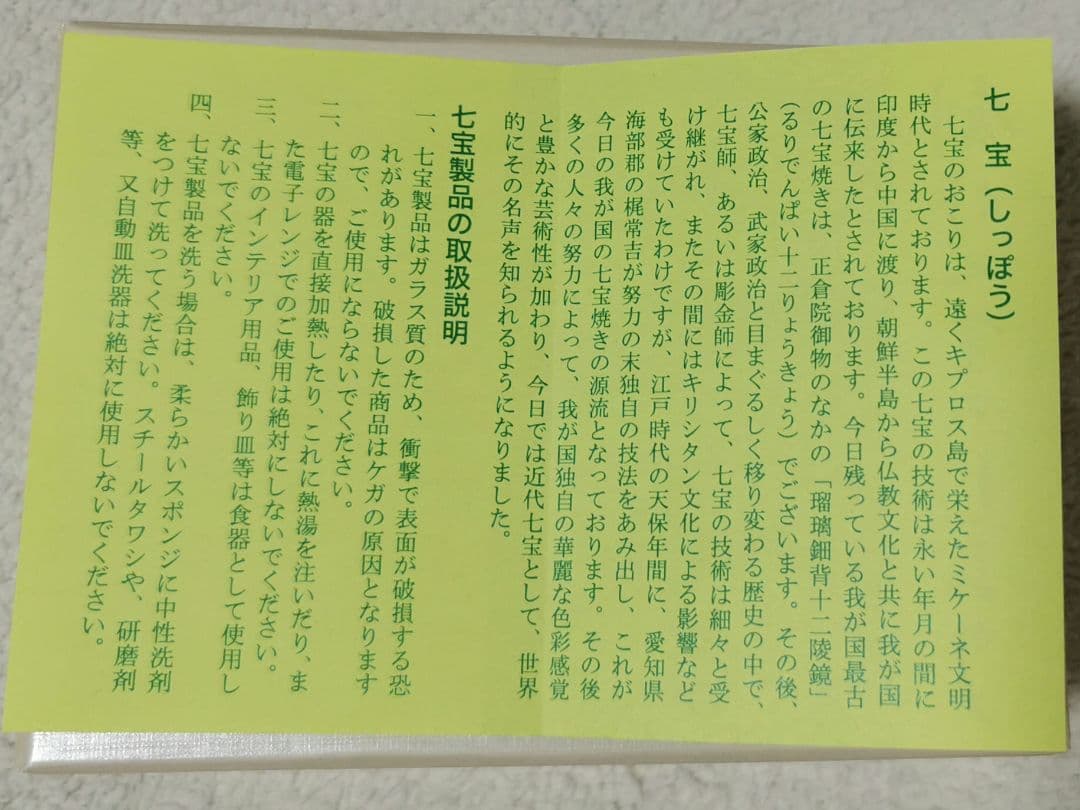 七　宝（しっぽう）
七宝のおこりは、遠くキプロス島で栄えたミケーネ文明
時代とされております。この七宝の技術は永い年月の間に
印度から中国に渡り、朝鮮半島から仏教文化と共に我が国
に伝来したとされております。今日残っている我が国最古
の七宝焼きは、正倉院御物のなかの「瑠璃鈿背十二陵鏡」
（るりでんぱい十二りょうきょう）でございます。その後、
公家政治、武家政治と目まぐるしく移り変わる歴史の中で、
七宝師、あるいは彫金師によって、七宝の技術は細々と受
け継がれ、またその間にはキリシタン文化による影響など
も受けていたわけですが、江戸時代の天保年間に、愛知県
海部郡の梶常吉が努力の末独自の技法をあみ出し、これが
今日の我が国の七宝焼きの源流となっております。その後
多くの人々の努力によって、我が国独自の華麗な色彩感覚
と豊かな芸術性が加わり、今日では近代七宝として、世界
的にその名声を知られるようになりました。
七宝製品の取扱説明
一、七宝製品はガラス質のため、衝撃で表面が破損する恐
れがあります。破損した商品はケガの原因となります
ので、ご使用にならないでください。
二、七宝の器を直接加熱したり、これに熱湯を注いだり、ま
た電子レンジでのご使用は絶対にしないでください。
三、七宝のインテリア用品、飾り皿等は食器として使用し
ないでください。
四、七宝製品を洗う場合は、柔らかいスポンジに中性洗剤
をつけて洗ってください。スチールタワシや、研磨剤
等、又自動皿洗器は絶対に使用しないでください。